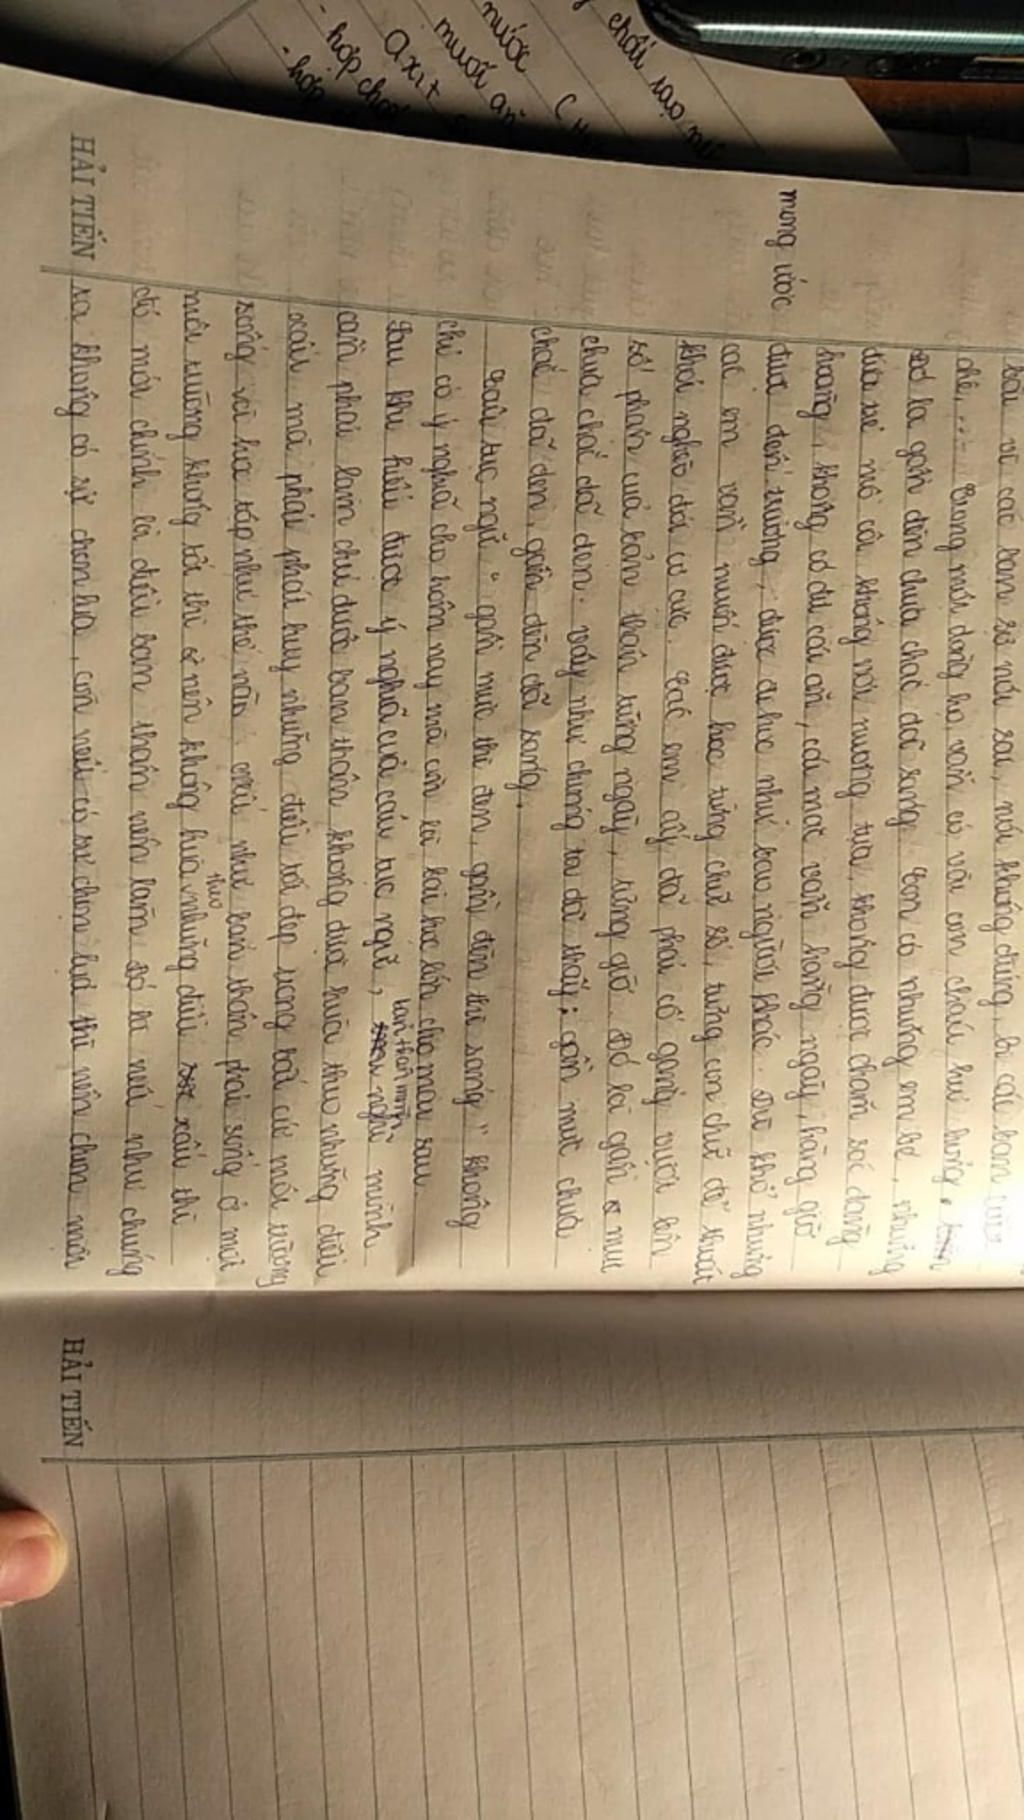 chất sao
nước
muối ăn
axit
- hợp chất
- hợp
sau vì các bạn sẽ nói sai, nói không đúng, bị các bạn cười
chê, ... Trong mỗi dòng họ, vẫn có vài con cháu hư hỏng,
Đó là gần đèn chưa chắc đã sáng. Còn có những em bé, những
đứa trẻ mồ côi không nơi nương tựa, không được chăm sóc đàng
hoàng, không có đủ cái ăn, cái mặc vẫn hằng ngày, hằng giờ
mong ước
được đến trường, được đi học như bao người khác. Dù khổ nhưng
các em vẫn muốn được học từng chữ số, từng con chữ để thoát
khỏi nghèo đói cơ cực. Các em ấy đã phải cố gắng vượt lên
số phận của bản thân từng ngày, từng giờ. Đó là gần mực
chưa chắc đã đen. Vậy như chúng ta đã thấy: gần mực chưa
chắc đã đen, gần đèn đã sáng.
Câu tục ngữ "gần mực thì đen, gần đèn thì sáng" không
chỉ có ý nghĩa cho hôm nay mà còn là bài học lớn cho mai sau.
Sau khi hiểu được ý nghĩa của câu tục ngữ, bản thân mình nghĩ mình
cần phải làm chủ được bản thân không được hùa theo những điều
xấu mà phải phát huy những điều tốt đẹp trong bất cứ môi trường
sống và học tập như thế nào. Nếu như bản thân phải sống ở một
môi trường không tốt thì ta nên không hùa theo những điều xấu thì
đó mới chính là điều bản thân nên làm. Đó là nếu như chúng
ta không có sự chọn lựa, còn nếu có sự chọn lựa thì nên chọn môi
HẢI TIẾN
HẢI TIẾN